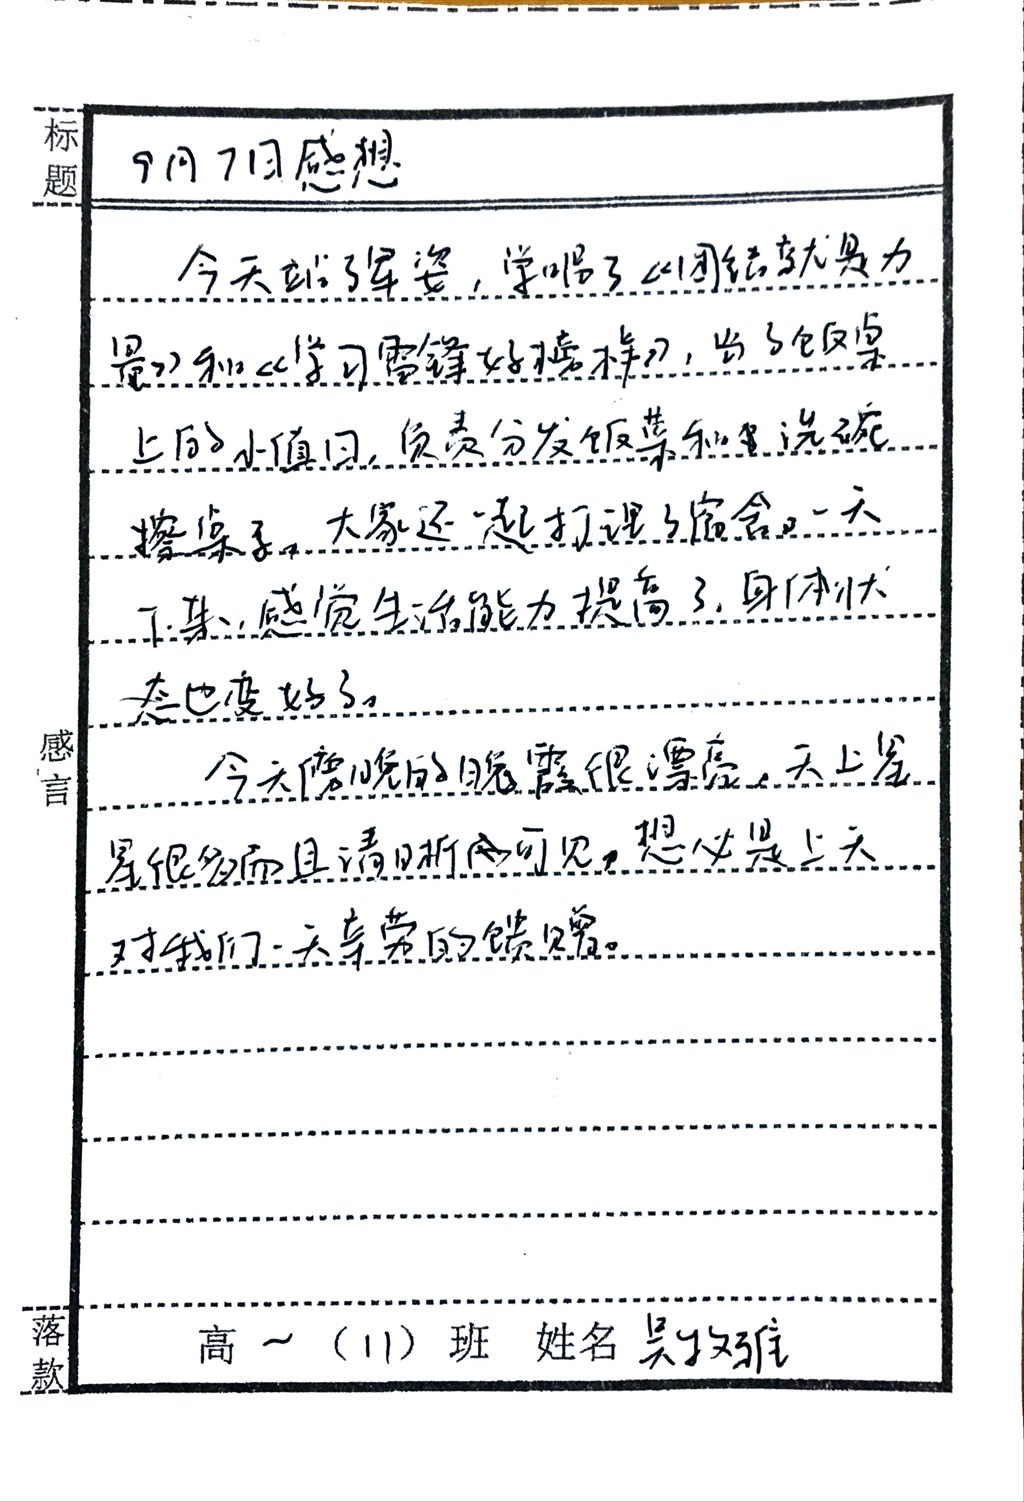 标题
9月7日感想
今天站了军姿，学唱了《团结就是力
量》和《学习雷锋好榜样》，当了饭桌
上的小值日，负责分发饭菜和洗碗
擦桌子。大家还一起打理了宿舍。一天
下来，感觉生活能力提高了，身体状
态也变好了。
感言
今天傍晚的晚霞很漂亮，天上星
星很多而且清晰可见。想必是上天
对我们一天辛劳的馈赠。
落款
高一（11）班 姓名 吴牧雅